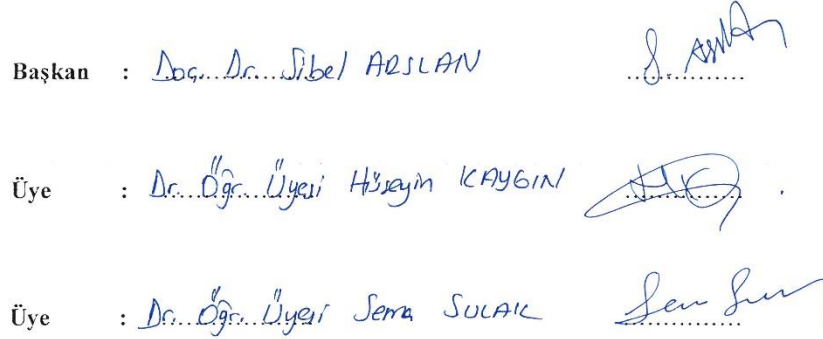 Başkan : Doç. Dr. Sibel ARSLAN
Üye : Dr. Öğr. Üyesi Hüseyin KAYGIN
Üye : Dr. Öğr. Üyesi Sema SULAK